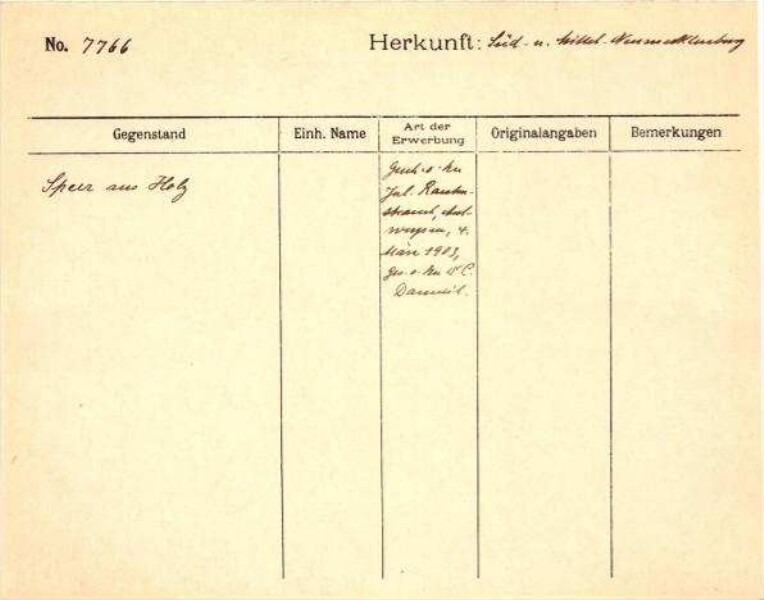 No. 7766
Herkunft: Süd- u. Mittel-Neumecklenburg
Gegenstand
Einh. Name
Art der Erwerbung
Originalangaben
Bemerkungen
Speer aus Holz
Gesch. v. Hn
Jul. Rauten-
strauch, Ant-
werpen, 4.
März 1903,
ges. v. Hn